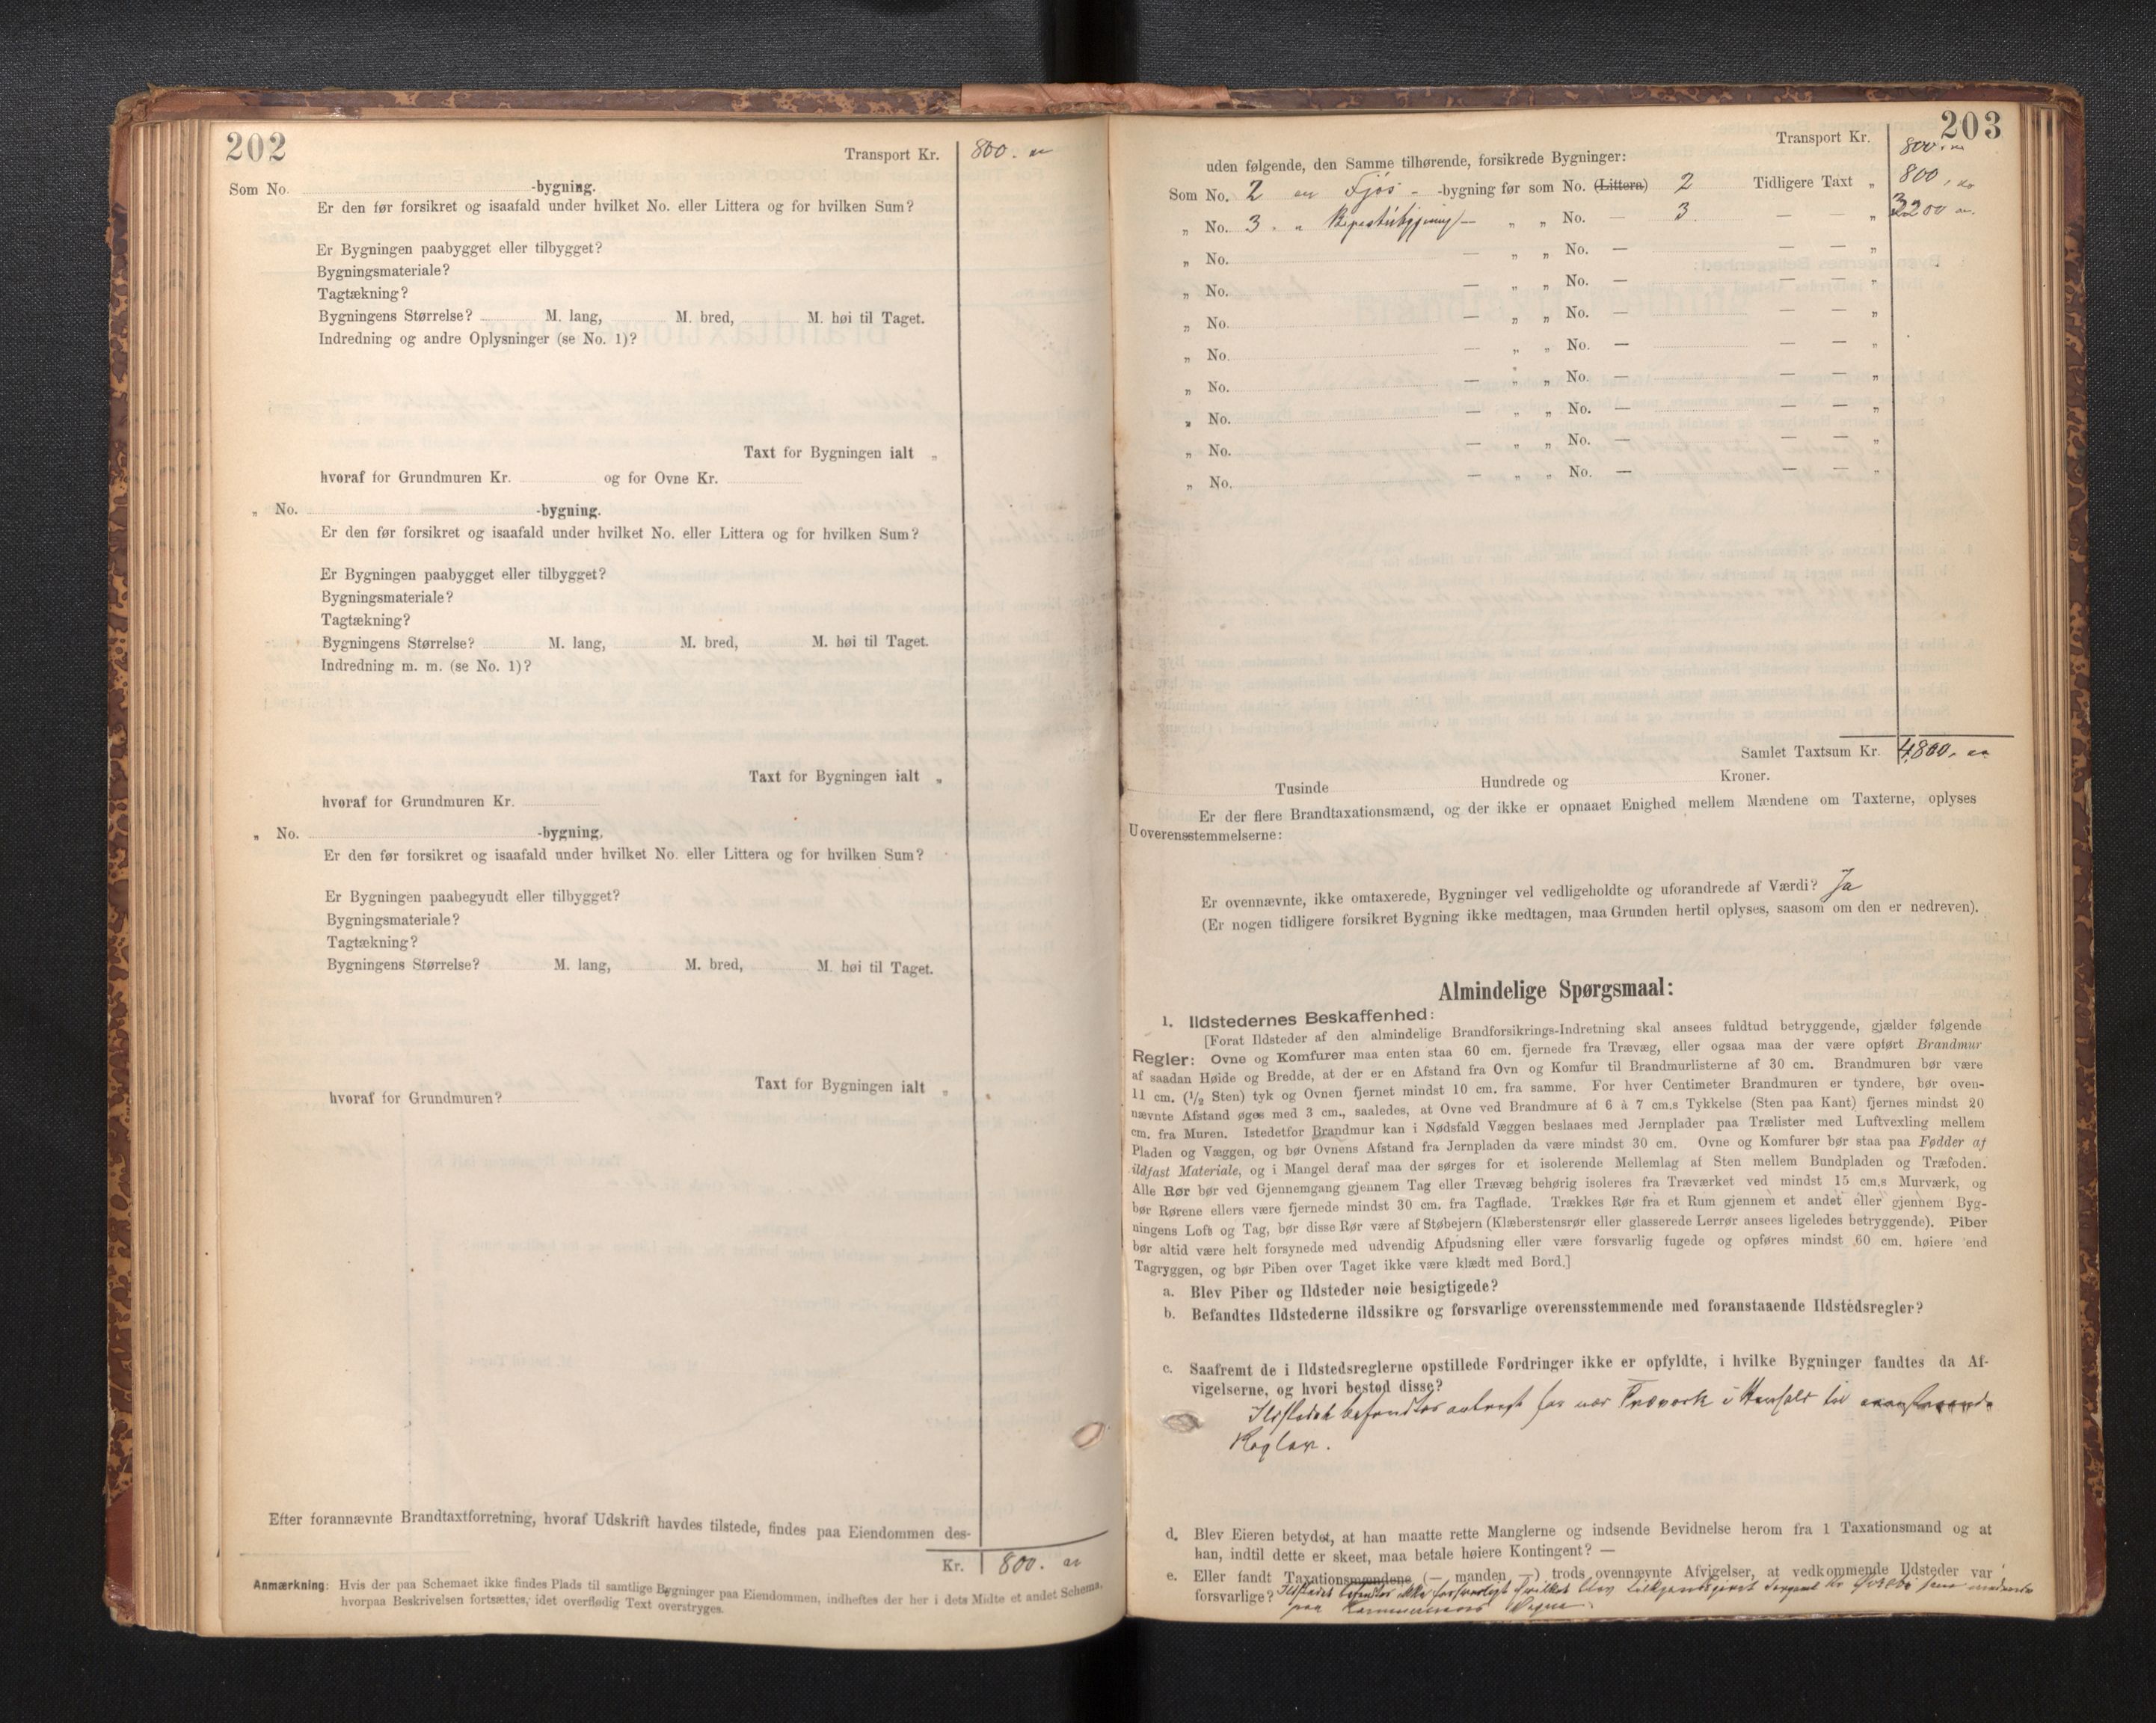 202
Transport Kr. 800.
Som No. -bygning.
Er den før forsikret og isaafald under hvilket No. eller Littera og for hvilken Sum?
Er Bygningen paabygget eller tilbygget?
Bygningsmateriale?
Tagtækning?
Bygningens Størrelse? M. lang, M. bred, M. høi til Taget.
Indredning og andre Oplysninger (se No. 1)?
Taxt for Bygningen ialt „
hvoraf for Grundmuren Kr. og for Ovne Kr.
„ No. -bygning.
Er den før forsikret og isaafald under hvilket No. eller Littera og for hvilken Sum?
Er Bygningen paabygget eller tilbygget?
Bygningsmateriale?
Tagtækning?
Bygningens Størrelse? M. lang, M. bred, M. høi til Taget.
Indredning m. m. (se No. 1)?
Taxt for Bygningen ialt „
hvoraf for Grundmuren Kr.
„ No. -bygning.
Er den før forsikret og isaafald under hvilket No. eller Littera og for hvilken Sum?
Er Bygningen paabegyndt eller tilbygget?
Bygningsmateriale?
Tagtækning?
Bygningens Størrelse? M. lang, M. bred, M. høi til Taget.
Taxt for Bygningen ialt „
hvoraf for Grundmuren?
Efter forannævnte Brandtaxtforretning, hvoraf Udskrift havdes tilstede, findes paa Eiendommen des-
Kr. 800.
Anmærkning: Hvis der paa Schemaet ikke findes Plads til samtlige Bygninger paa Eiendommen, indheftes der her i dets Midte et andet Schema,
hvorpaa Beskrivelsen fortsættes, idet overflødig Text overstryges.
203
Transport Kr. 800.
uden følgende, den Samme tilhørende, forsikrede Bygninger:
Som No. 2 en Fjös - -bygning før som No. (Littera) 2 Tidligere Taxt „ 800,
„ No. 3 „ „ — „ „ No. — 3. — — „ 3200
„ No. — „ „ No. — — — „
„ No. — „ „ No. — — — „
„ No. — „ „ No. — — — „
„ No. — „ „ No. — — — „
„ No. — „ „ No. — — — „
„ No. — „ „ No. — — — „
„ No. — „ „ No. — — — „
„ No. — „ „ No. — — — „
Samlet Taxtsum Kr. 4,800,
Tusinde Hundrede og Kroner.
Er der flere Brandtaxationsmænd, og der ikke er opnaaet Enighed mellem Mændene om Taxterne, oplyses
Uoverensstemmelserne:
Er ovennævnte, ikke omtaxerede, Bygninger vel vedligeholdte og uforandrede af Værdi? Ja
(Er nogen tidligere forsikret Bygning ikke medtagen, maa Grunden hertil oplyses, saasom om den er nedreven).
Almindelige Spørgsmaal:
1. Ildstedernes Beskaffenhed:
[Forat Ildsteder af den almindelige Brandforsikrings-Indretning skal ansees fuldtud betryggende, gjælder følgende
Regler: Ovne og Komfurer maa enten staa 60 cm. fjernede fra Trævæg, eller ogsaa maa der være opført Brandmur
af saadan Høide og Bredde, at der er en Afstand fra Ovn og Komfur til Brandmurlisterne af 30 cm. Brandmuren bør være
11 cm. (1/2 Sten) tyk og Ovnen fjernet mindst 10 cm. fra samme. For hver Centimeter Brandmuren er tyndere, bør oven-
nævnte Afstand øges med 3 cm., saaledes, at Ovne ved Brandmure af 6 à 7 cm.s Tykkelse (Sten paa Kant) fjernes mindst 20
cm. fra Muren. Istedetfor Brandmur kan i Nødsfald Væggen beslaaes med Jernplader paa Trælister med Luftvexling mellem
Pladen og Væggen, og bør Ovnens Afstand fra Jernpladen da være mindst 30 cm. Ovne og Komfurer bør staa paa Fødder af
ildfast Materiale, og i Mangel deraf maa der sørges for et isolerende Mellemlag af Sten mellem Bundpladen og Træfoden.
Alle Rør bør ved Gjennemgang gjennem Tag eller Trævæg behørig isoleres fra Træværket ved mindst 15 cm.s Murværk, og
bør Rørene ellers være fjernede mindst 30 cm. fra Tagflade. Trækkes Rør fra et Rum gjennem et andet eller gjennem Byg-
ningens Loft og Tag, bør disse Rør være af Støbejern (Klæberstensrør eller glasserede Lerrør ansees ligeledes betryggende). Piber
bør altid være helt forsynede med udvendig Afpudsning eller være forsvarlig fugede og opføres mindst 60 cm. høiere end
Tagryggen, og bør Piben over Taget ikke være klædt med Bord.]
a. Blev Piber og Ildsteder nøie besigtigede?
b. Befandtes Ildstederne ildssikre og forsvarlige overensstemmende med foranstaaende Ildstedsregler?
c. Saafremt de i Ildstedsreglerne opstillede Fordringer ikke er opfyldte, i hvilke Bygninger fandtes da Af-
vigelserne, og hvori bestod disse?
Ildstedet befandtes anbragt for nær Træværk i Henhold til
Regler.
d. Blev Eieren betydet, at han maatte rette Manglerne og indsende Bevidnelse herom fra 1 Taxationsmand og at
han, indtil dette er skeet, maa betale høiere Kontingent? —
e. Eller fandt Taxationsmændene (— manden —) trods ovennævnte Afvigelser, at vedkommende Ildsteder var
forsvarlige? Ildstedet befandtes ikke forsvarligt hvilket blev
paa